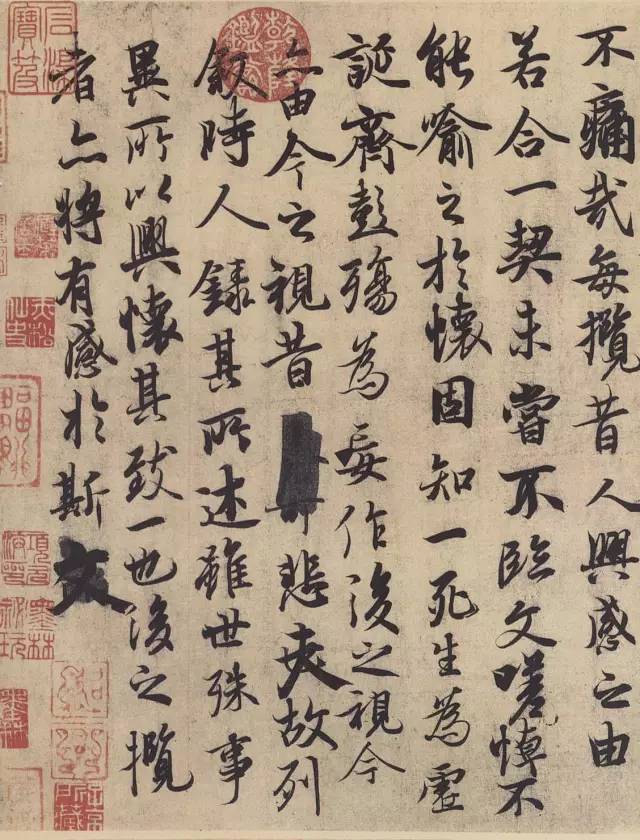 不痛哉每攬昔人興感之由
若合一契未嘗不臨文嗟悼不
能喻之於懷固知一死生為虛
誕齊彭殤為妄作後之視今
亦由今之視昔悲夫故列
叙時人錄其所述雖世殊事
異所以興懷其致一也後之攬
者亦將有感於斯文
乾隆鑑賞
石渠寶笈
墨林秘玩